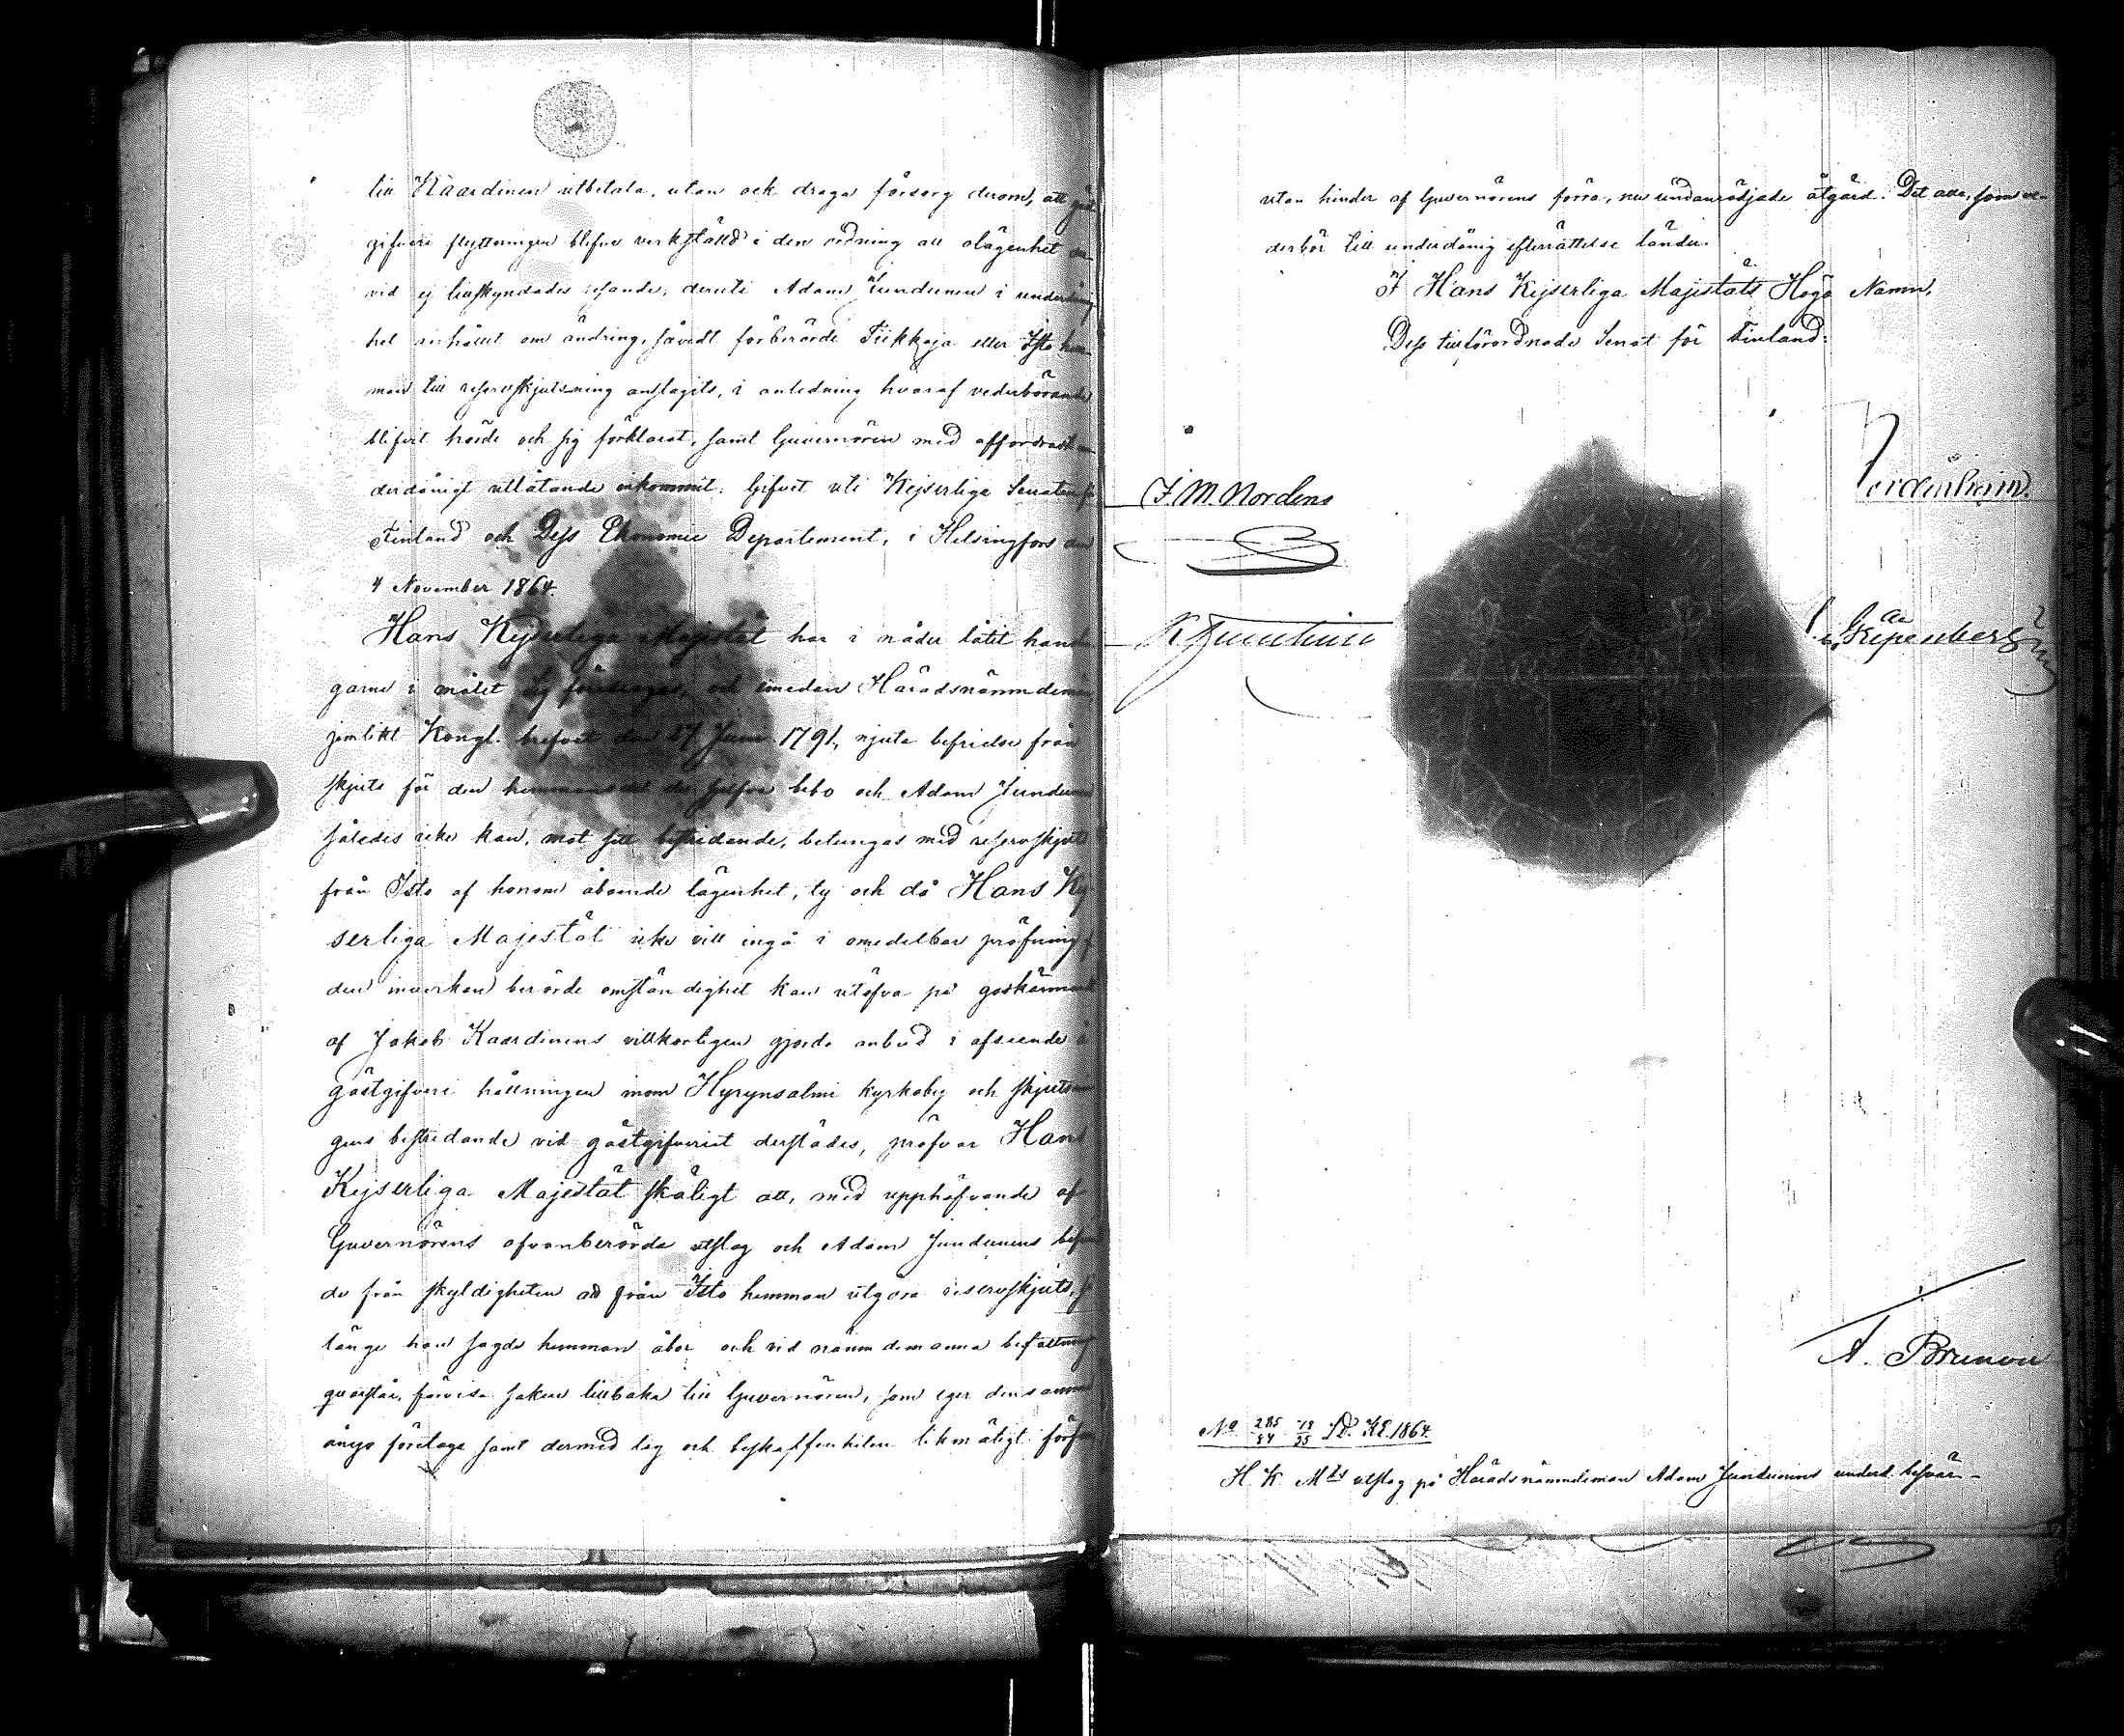 till Kaardinen utbetala, utan ock draga försorg derom, att gäst
gifveri flyttningen blefve verkställd i den ordning att olägenhet
vid ej tillskyndades resande; deruti Adam Jundunen i underdånig
het anhållit om ändring, såvidt förberörde Tiikkaja eller Isto hem
man till reservskjutsning anslagits, i anledning hvaraf vederbörande
blifvit hörde och sig förklarat, samt Guvernören med affordradt un
derdånigt utlåtande inkommit. Gifvet uti Kejserliga Senaten för
Finland och Dess Ekonomie Departement, i Helsingfors den
4 November 1864.
Hans Kejserliga Majestät har i nåder låtit hand
garne i målet Sig föredragas, och emedan Häradsnämndemän
jemlikt Kongl. brefvet den 27 Junii 1791, njuta befrielse från
skjuts för den hemmansdel de sjelfve bebo och Adam Jundunen
således icke kan, mot sitt bestridande, betungas med reservskjuts
från Isto af honom åboende lägenhet, ty och då Hans Kej
serliga Majestät icke vill ingå i omedelbar pröfning af
den inverkan berörde omständighet kan utöfva på godkännande
af Jakob Kaardinens villkorligen gjorda anbud i afseende å
gästgifveri hållningen inom Hyrynsalmi kyrkoby och skjutsnin
gens bestridande vid gästgifveriet derstädes, pröfvar Hans
Kejserliga Majestät skäligt att, med upphäfvande af
Guvernörens ofvanberörda utslag och Adam Jundunens befrian
de från skyldigheten att från Isto hemman utgöra reservskjuts, så
länge han sagde hemman åbor och vid nämndemanna befattning
qvarstår, förvisa saken tillbaka till Guvernören, som eger densamma
ånyo företaga samt dermed lag och beskaffenheten likmätigt förfara
utan hinder af Guvernörens förra, nu undanrödjade åtgärd. Det alla, som ve-
derbör till underdånig efterrättelse lände.
I Hans Kejserliga Majestäts Höga Namn,
Dess tillförordnade Senat för Finland:
J. M. Nordens
Nordenheim.
A. Brunou
No 285/84 18/25 S.D. KE. 1864.
H. K. Mts utslag på Häradsnämndeman Adam Jundunens underd. besvär.-